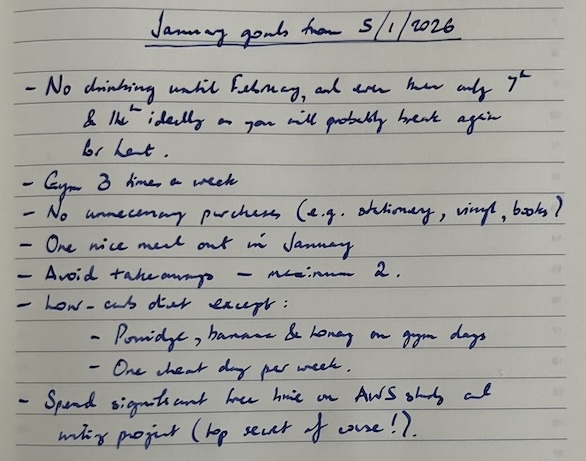 January goals from 5/1/2026
- No drinking until February, and even then only 7th
& 14th ideally as you will probably break again
for Lent.
- Gym 3 times a week
- No unnecessary purchases (e.g. stationery, vinyl, books)
- One nice meal out in January
- Avoid takeaways - maximum 2.
- Low-carb diet except:
- Porridge, banana & honey on gym days
- One cheat day per week.
- Spend significant free time on AWS study and
writing project (top secret of course!).